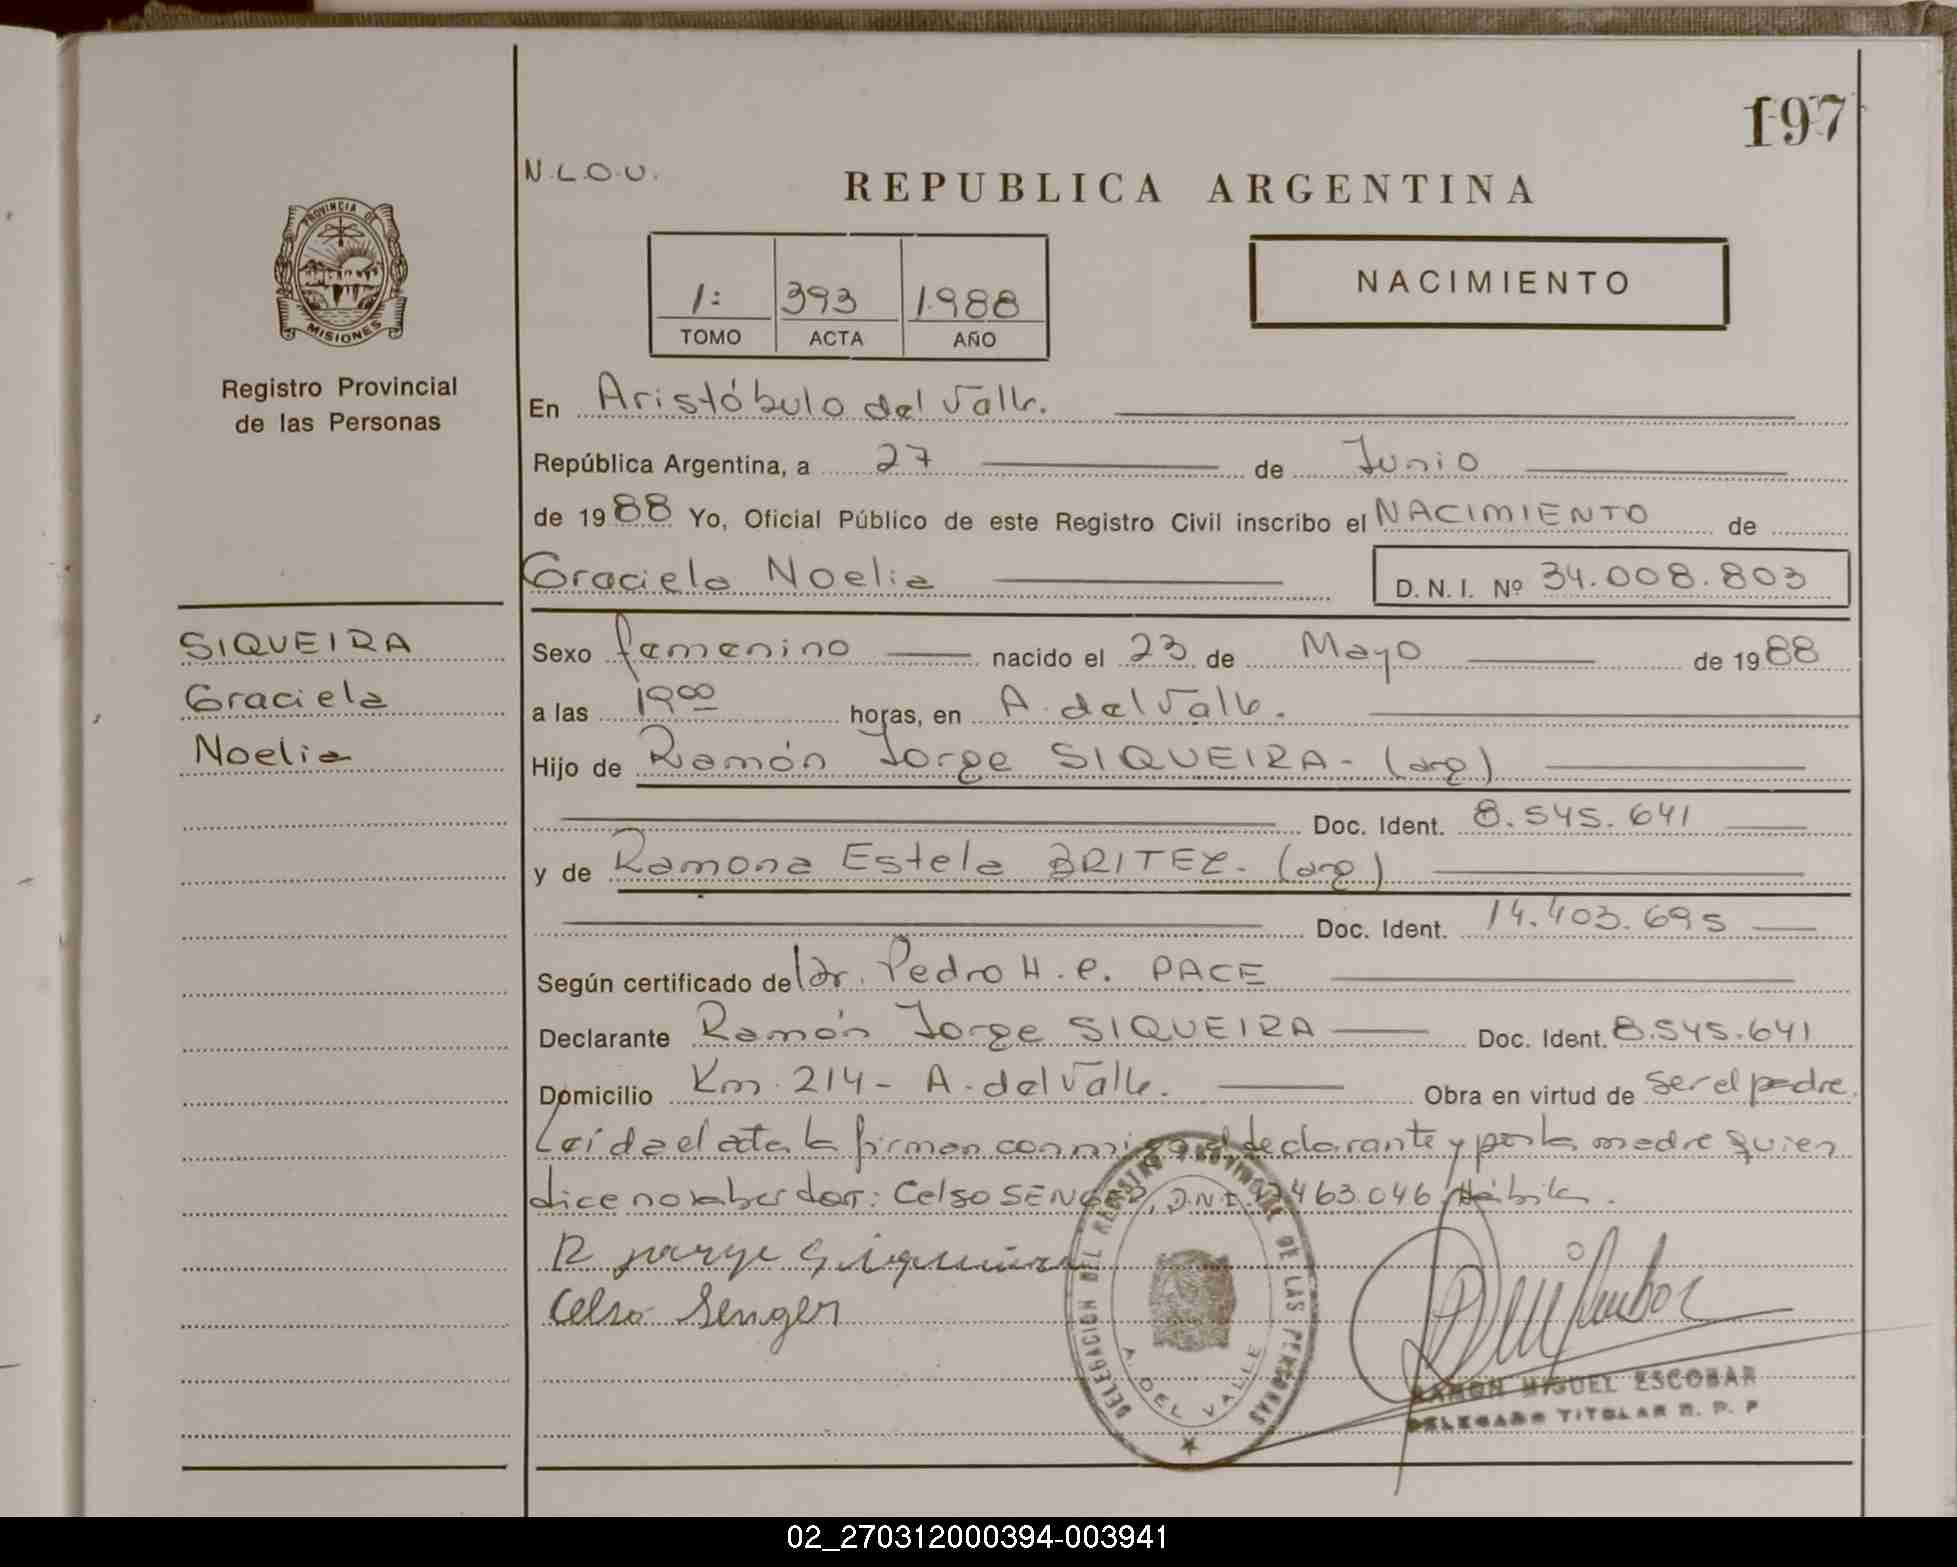 197
N.L.O.U.
REPUBLICA ARGENTINA
PROVINCIA DE
MISIONES
Registro Provincial
de las Personas
1: 393 1988
TOMO ACTA AÑO
NACIMIENTO
En Aristóbulo del Valle.
República Argentina, a 27 de Junio
de 1988 Yo, Oficial Público de este Registro Civil inscribo el NACIMIENTO de
Graciela Noelia D.N.I. Nº 34.008.803
SIQUEIRA
Graciela
Noelia
Sexo femenino nacido el 23 de Mayo de 1988
a las 19 00 horas, en A. del Valle.
Hijo de Ramón Jorge SIQUEIRA - (arg)
Doc. Ident. 8.545.641
y de Ramona Estela BRITEZ - (arg)
Doc. Ident. 14.403.695
Según certificado de Dr. Pedro H. e. PACE
Declarante Ramón Jorge SIQUEIRA Doc. Ident. 8.545.641
Domicilio Km. 214 - A. del Valle. Obra en virtud de ser el padre.
Leída el acta la firman conmigo el declarante y por la madre quien
dice no saber : Celso SENGER, D.N.I. 463.046 Hábiles.
R Jorge Siqueira
Celso Senger
DELEGACION DEL REGISTRO PROVINCIAL DE LAS PERSONAS
A. DEL VALLE
RAMON MIGUEL ESCOBAR
DELEGADO TITULAR R. P. P
02_270312000394-003941